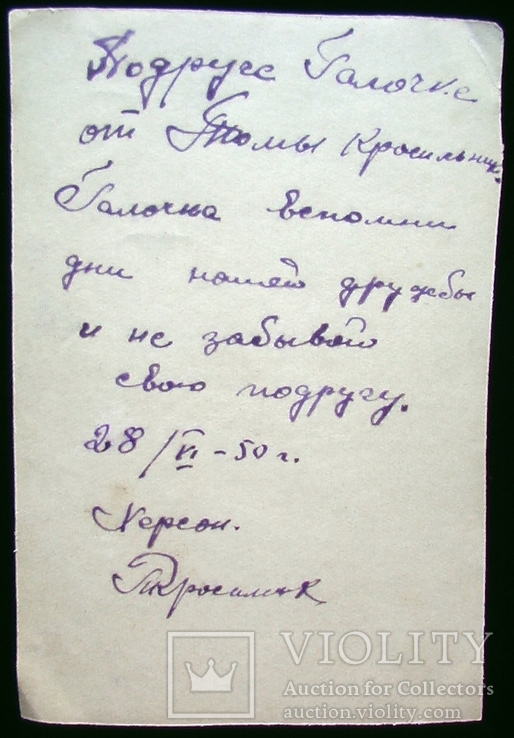 Подруге Галочке
от Томы Красильник.
Галочка вспомни
дни нашей дружбы
и не забывай
свою подругу.
28/VI-50 г.
Херсон.
ТКрасильник
VIOLITY
Auction for Collectors
auction.violity.com